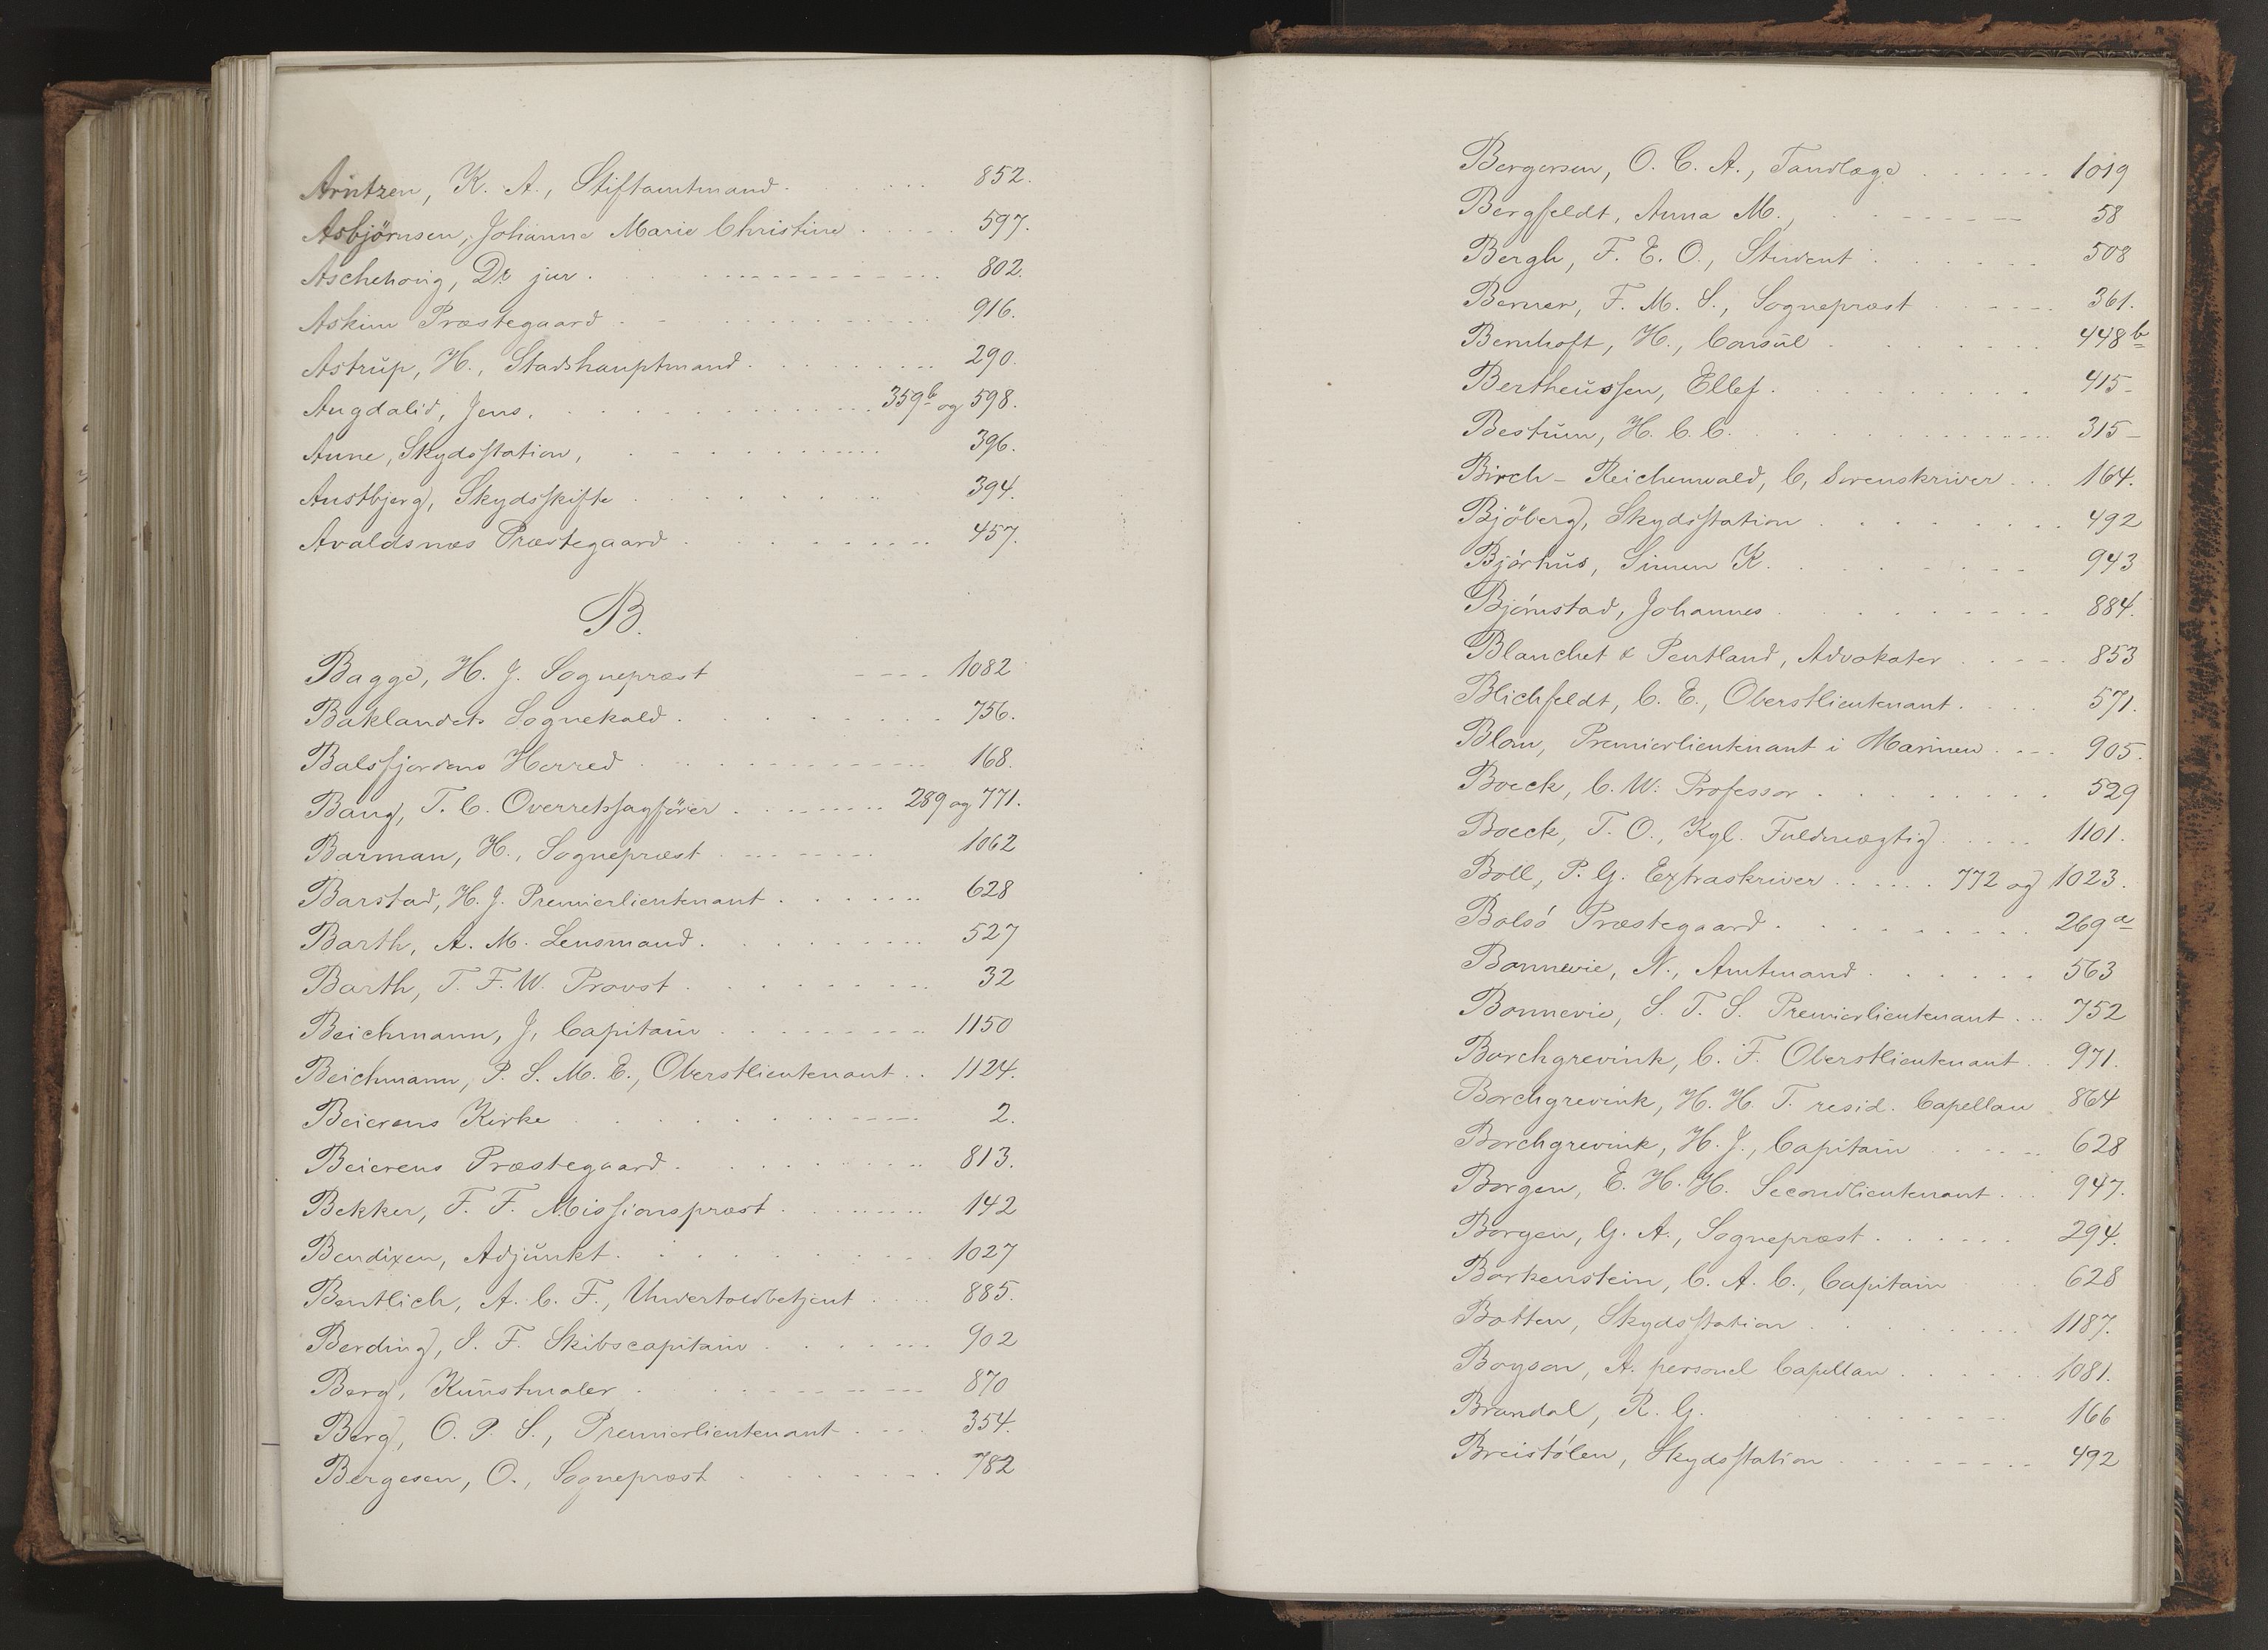 Arntzen, K. A., Stiftamtmand. 852.
Asbjørnsen, Johanne Marie Christine 597.
Aschehoug, Dr. jur. 802.
Askim Præstegaard 916.
Astrup, H., Stadshauptmand. 290.
Augdalid, Jens. 359b og 598.
Aune, Skydsstation, 396.
Austbjerg, Skydsskifte 394.
Avaldsnæs Præstegaard 457.
B.
Bagge, H. J. Sognepræst 1082
Baklandets Sognekald. 756.
Balsfjordens Herred 168.
Bang, T. C. Overretssagfører 289 og 771.
Barman, H., Sognepræst 1062
Barstad, H. J. Premierlieutenant 628
Barth, A. M. Lensmand. 527
Barth, T. F. W. Provst 32
Beichmann, J, Capitain 1150
Beichmann, P. S. M. E., Oberstlieutenant 1124.
Beierens Kirke 2.
Beierens Præstegaard. 813.
Bekker, F. F. Missionspræst 142
Bendixen, Adjunkt. 1027
Bentlich, A. C. F., Undertoldbetjent 885.
Berding, S. F. Skibscapitain 902
Berg, Kunstmaler 870
Berg, O. P. S., Premierlieutenant 354.
Bergesen, O., Sognepræst 782
Bergersen, O. C. A., Tandlæge 1019
Bergfeldt, Anna M., 58
Bergh, F. E. O., Student 508
Berner, F. M. S., Sognepræst 361.
Bernhoft, H., Consul 448b
Bertheussen, Ellef. 415-
Bestum, H. C. C. 315-
Birch-Reichenwald, C, Sorenskriver 164.
Bjöberg, Skydsstation 492
Bjórhus, Simen K. 943
Bjórnstad, Johannes 884.
Blanchet & Pentland, Advokater 853
Blichfeldt, C. E., Oberstlieutenant. 571.
Blom, Premierlieutenant i Marinen 905.
Boeck, C. W. Professor 529
Boeck, T. O., Kgl. Fuldmægtig 1101.
Boll, P. G. Extraskriver 772 og 1023.
Bolsó Præstegaard. 269a
Bonnevie, N., Amtmand 563
Bonnevie, S. T. S. Premierlieutenant 752
Borchgrevink, C. F. Oberstlieutenant 971.
Borchgrevink, H. H. T. resid. Capellan 864
Borchgrevink, H. J., Capitain 628
Borgen, E. H. H. Secondlieutenant 947.
Borgen, G. A., Sognepræst 294.
Borkenstein, C. A. C., Capitain 628
Botten, Skydsstation 1187.
Boyson, A. personel Capellan 1081.
Brandal, R. G. 166
Breistólen, Skydsstation 492